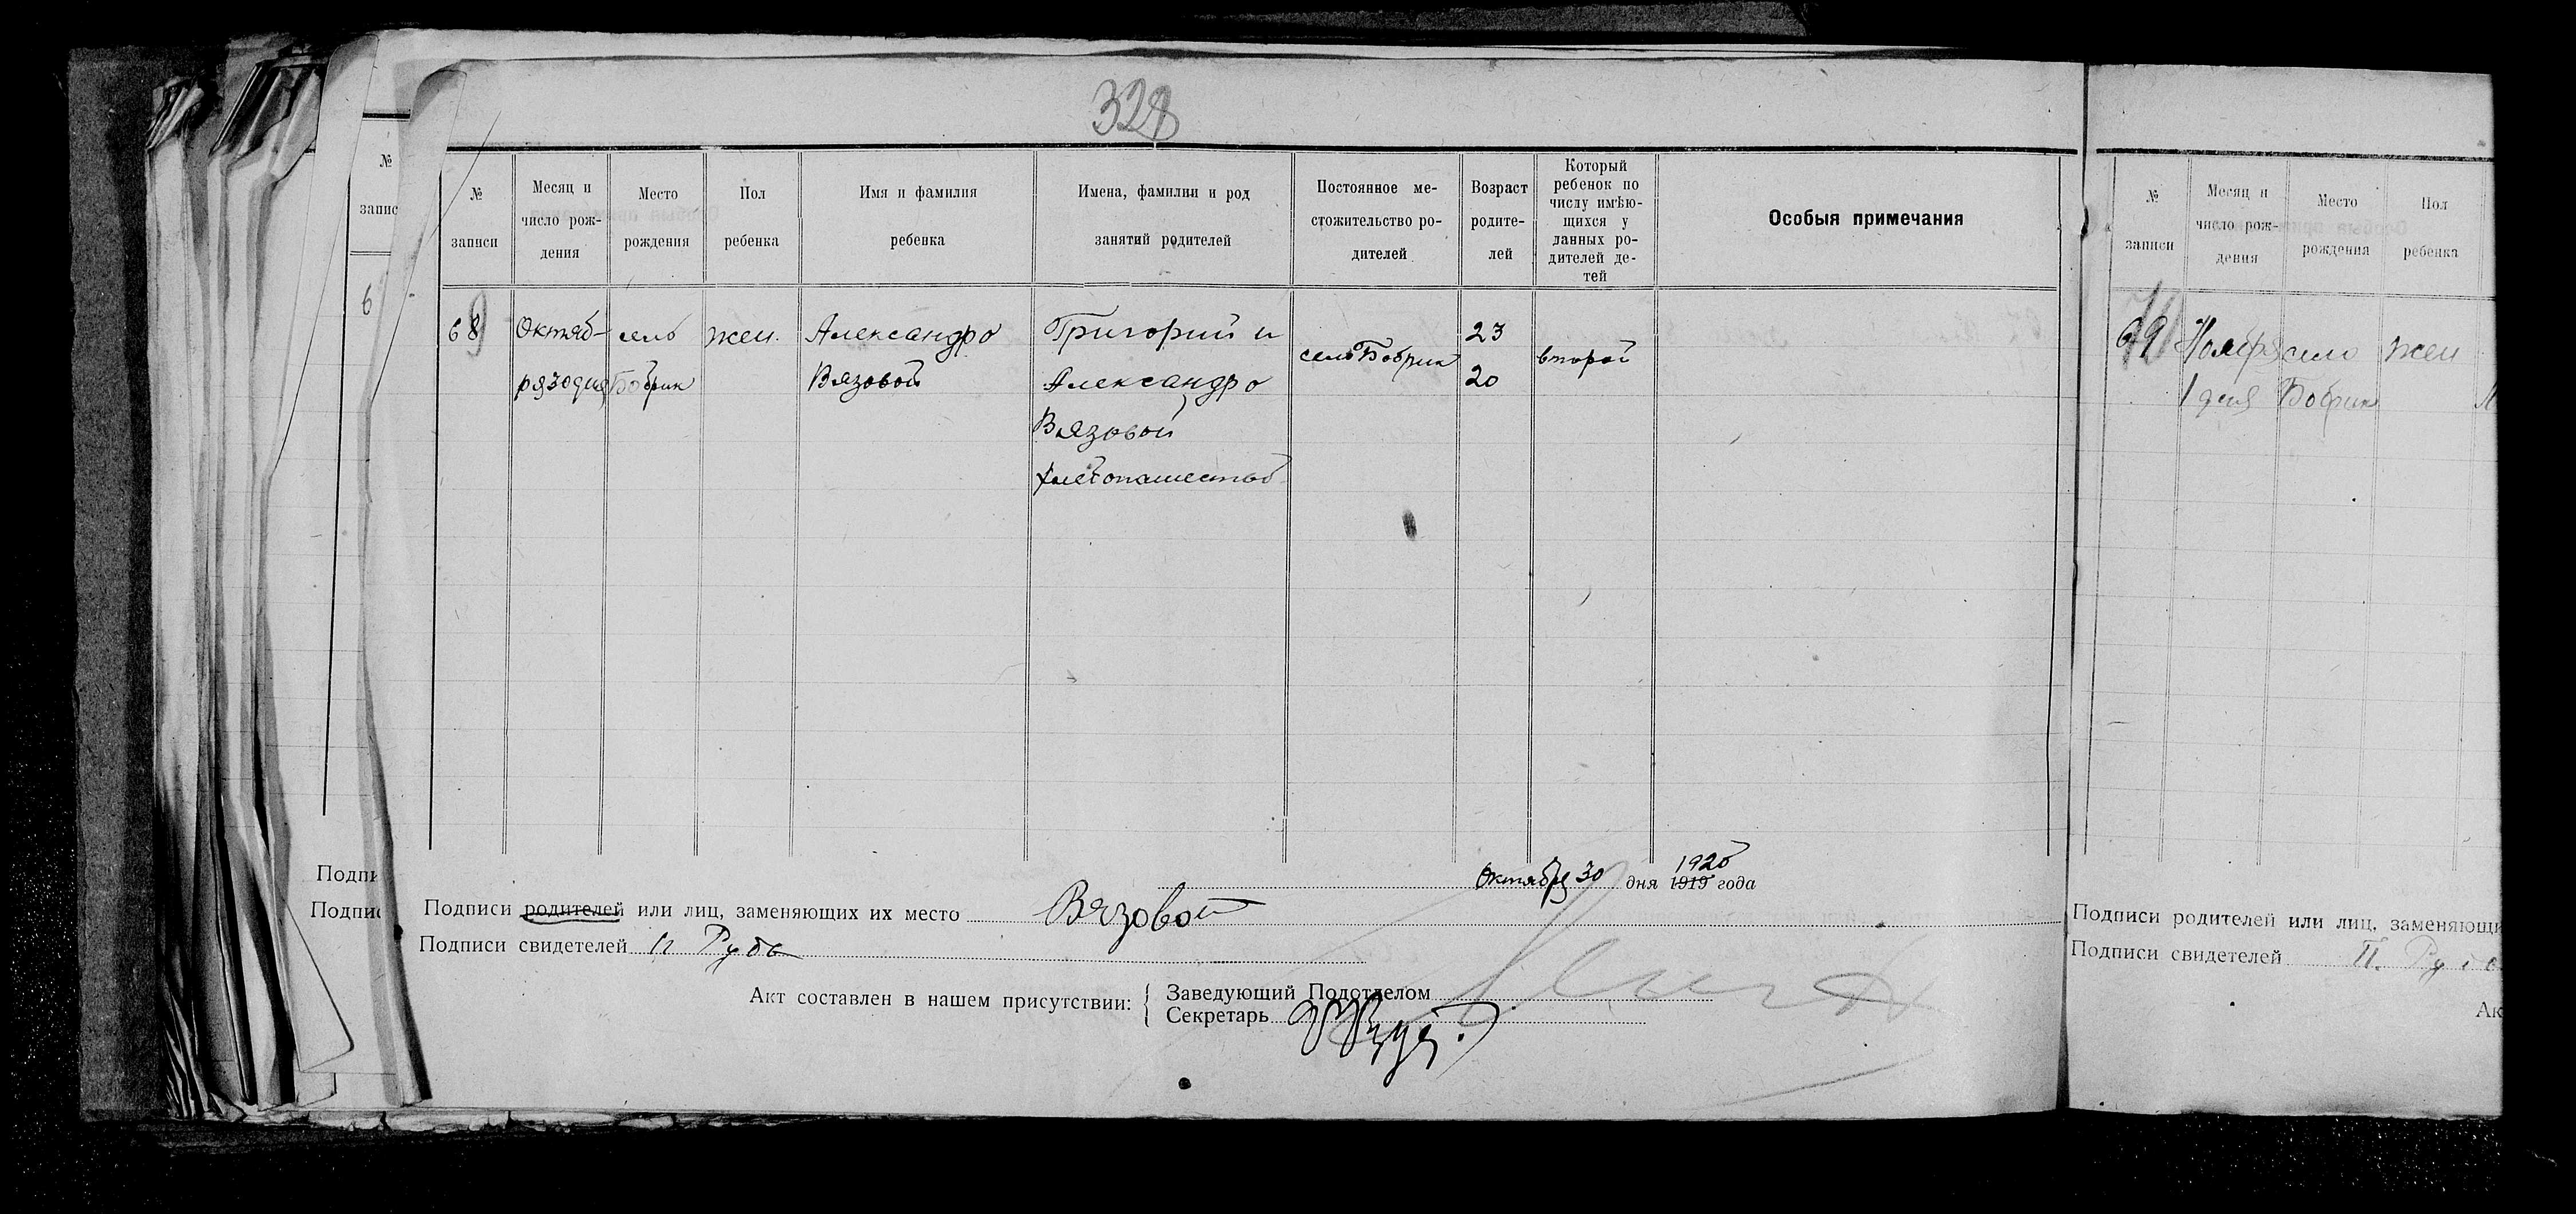 328
№
запис
6
Подпи
Подпис
№
записи
Месяц и
число рож-
дения
Место
рождения
Пол
ребенка
Имя и фамилия
ребенка
Имена, фамилии и род
занятий родителей
Постоянное ме-
стожительство ро-
дителей
Возраст
родите-
лей
Который
ребенок по
числу имѣю-
щихся у
данных ро-
дителей де-
тей
Особыя примечания
68
Октяб-
ря 30 дня
село
Бобрик
жен.
Александра
Вязовой
Григорий и
Александра
Вязовой
хлебопашество
село Бобрик
23
20
второй
Октября 30 дня 1919 года
1920
Подписи родителей или лиц, заменяющих их место Вязовой
Подписи свидетелей П Рубь
Акт составлен в нашем присутствии:
Заведующий Подотделом
Секретарь
№
записи
Месяц и
число рож-
дения
Место
рождения
Пол
ребенка
69
Ноября
1 дня
село
Бобрик
жен
Подписи родителей или лиц, заменяющи
Подписи свидетелей П.
Ак